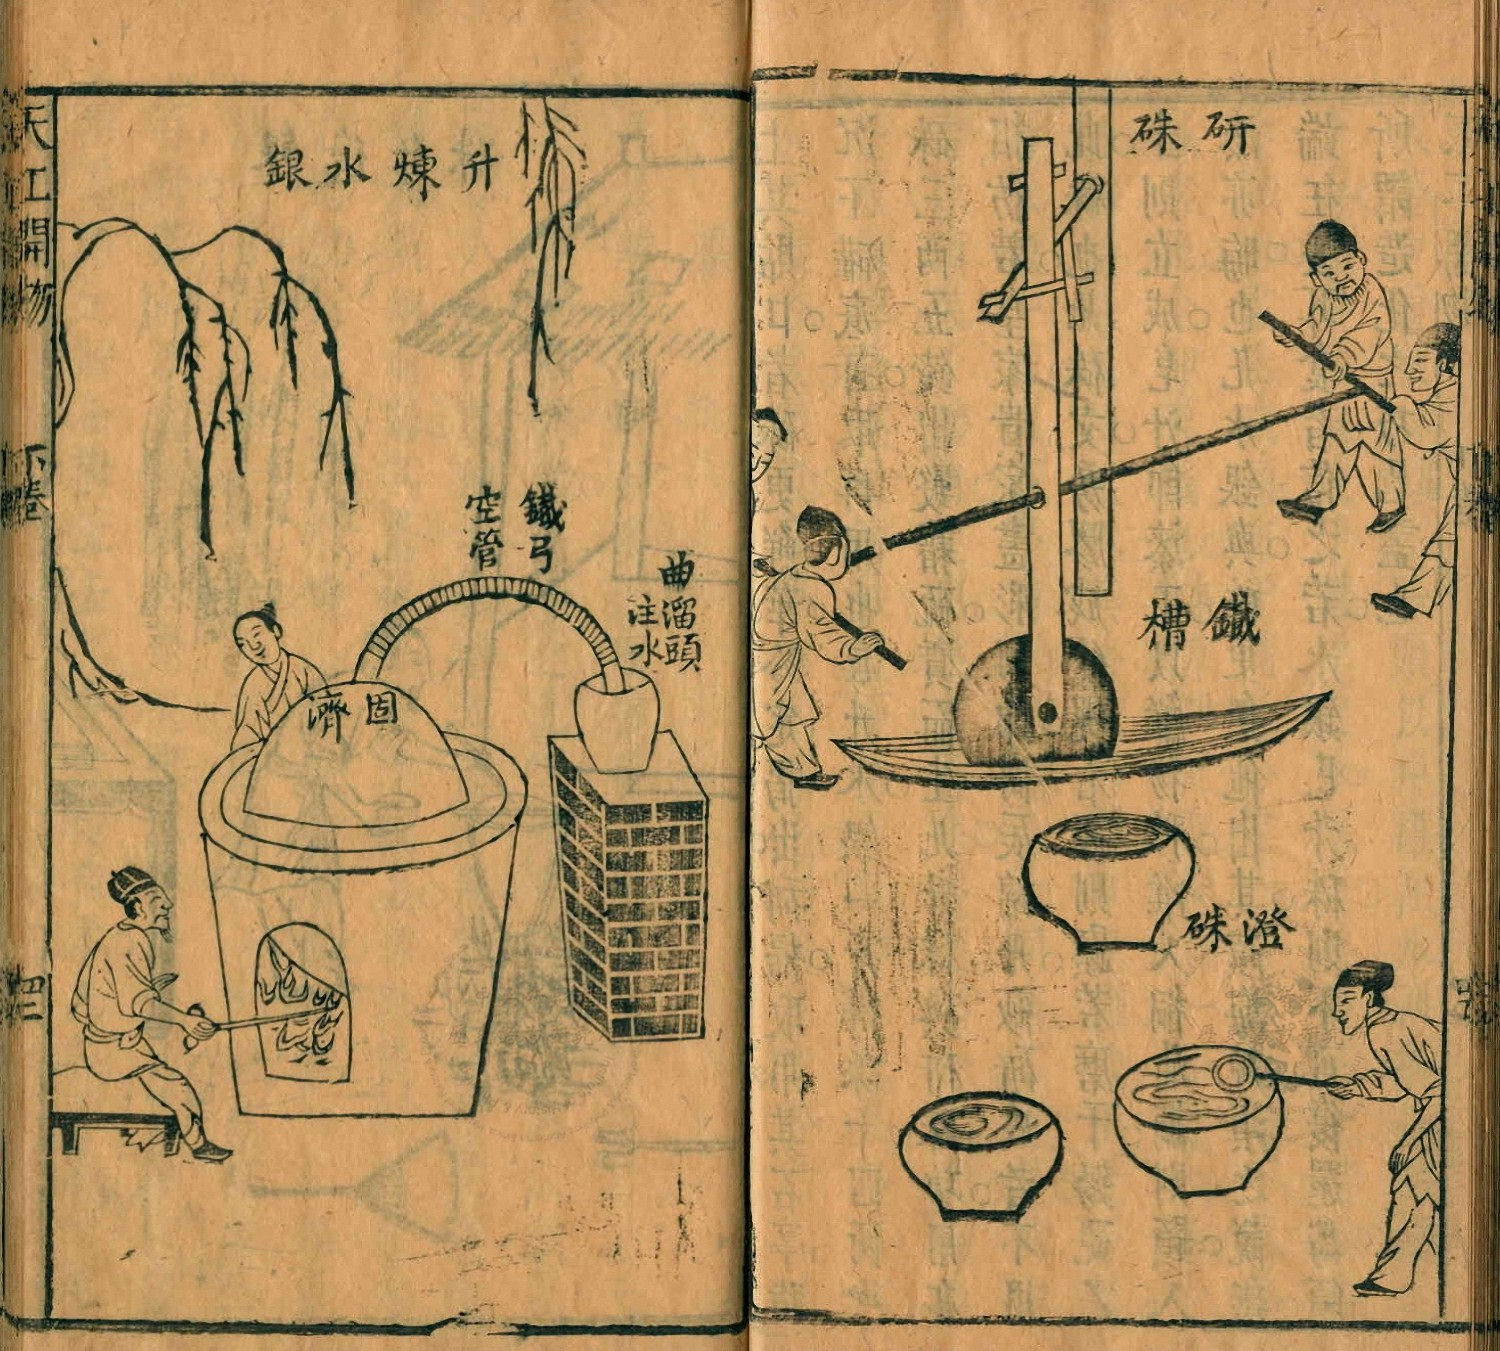 研硃
鐵槽
澄硃
升煉水銀
鐵弓
空管
曲溜頭
注水
固濟
天工開物
下卷